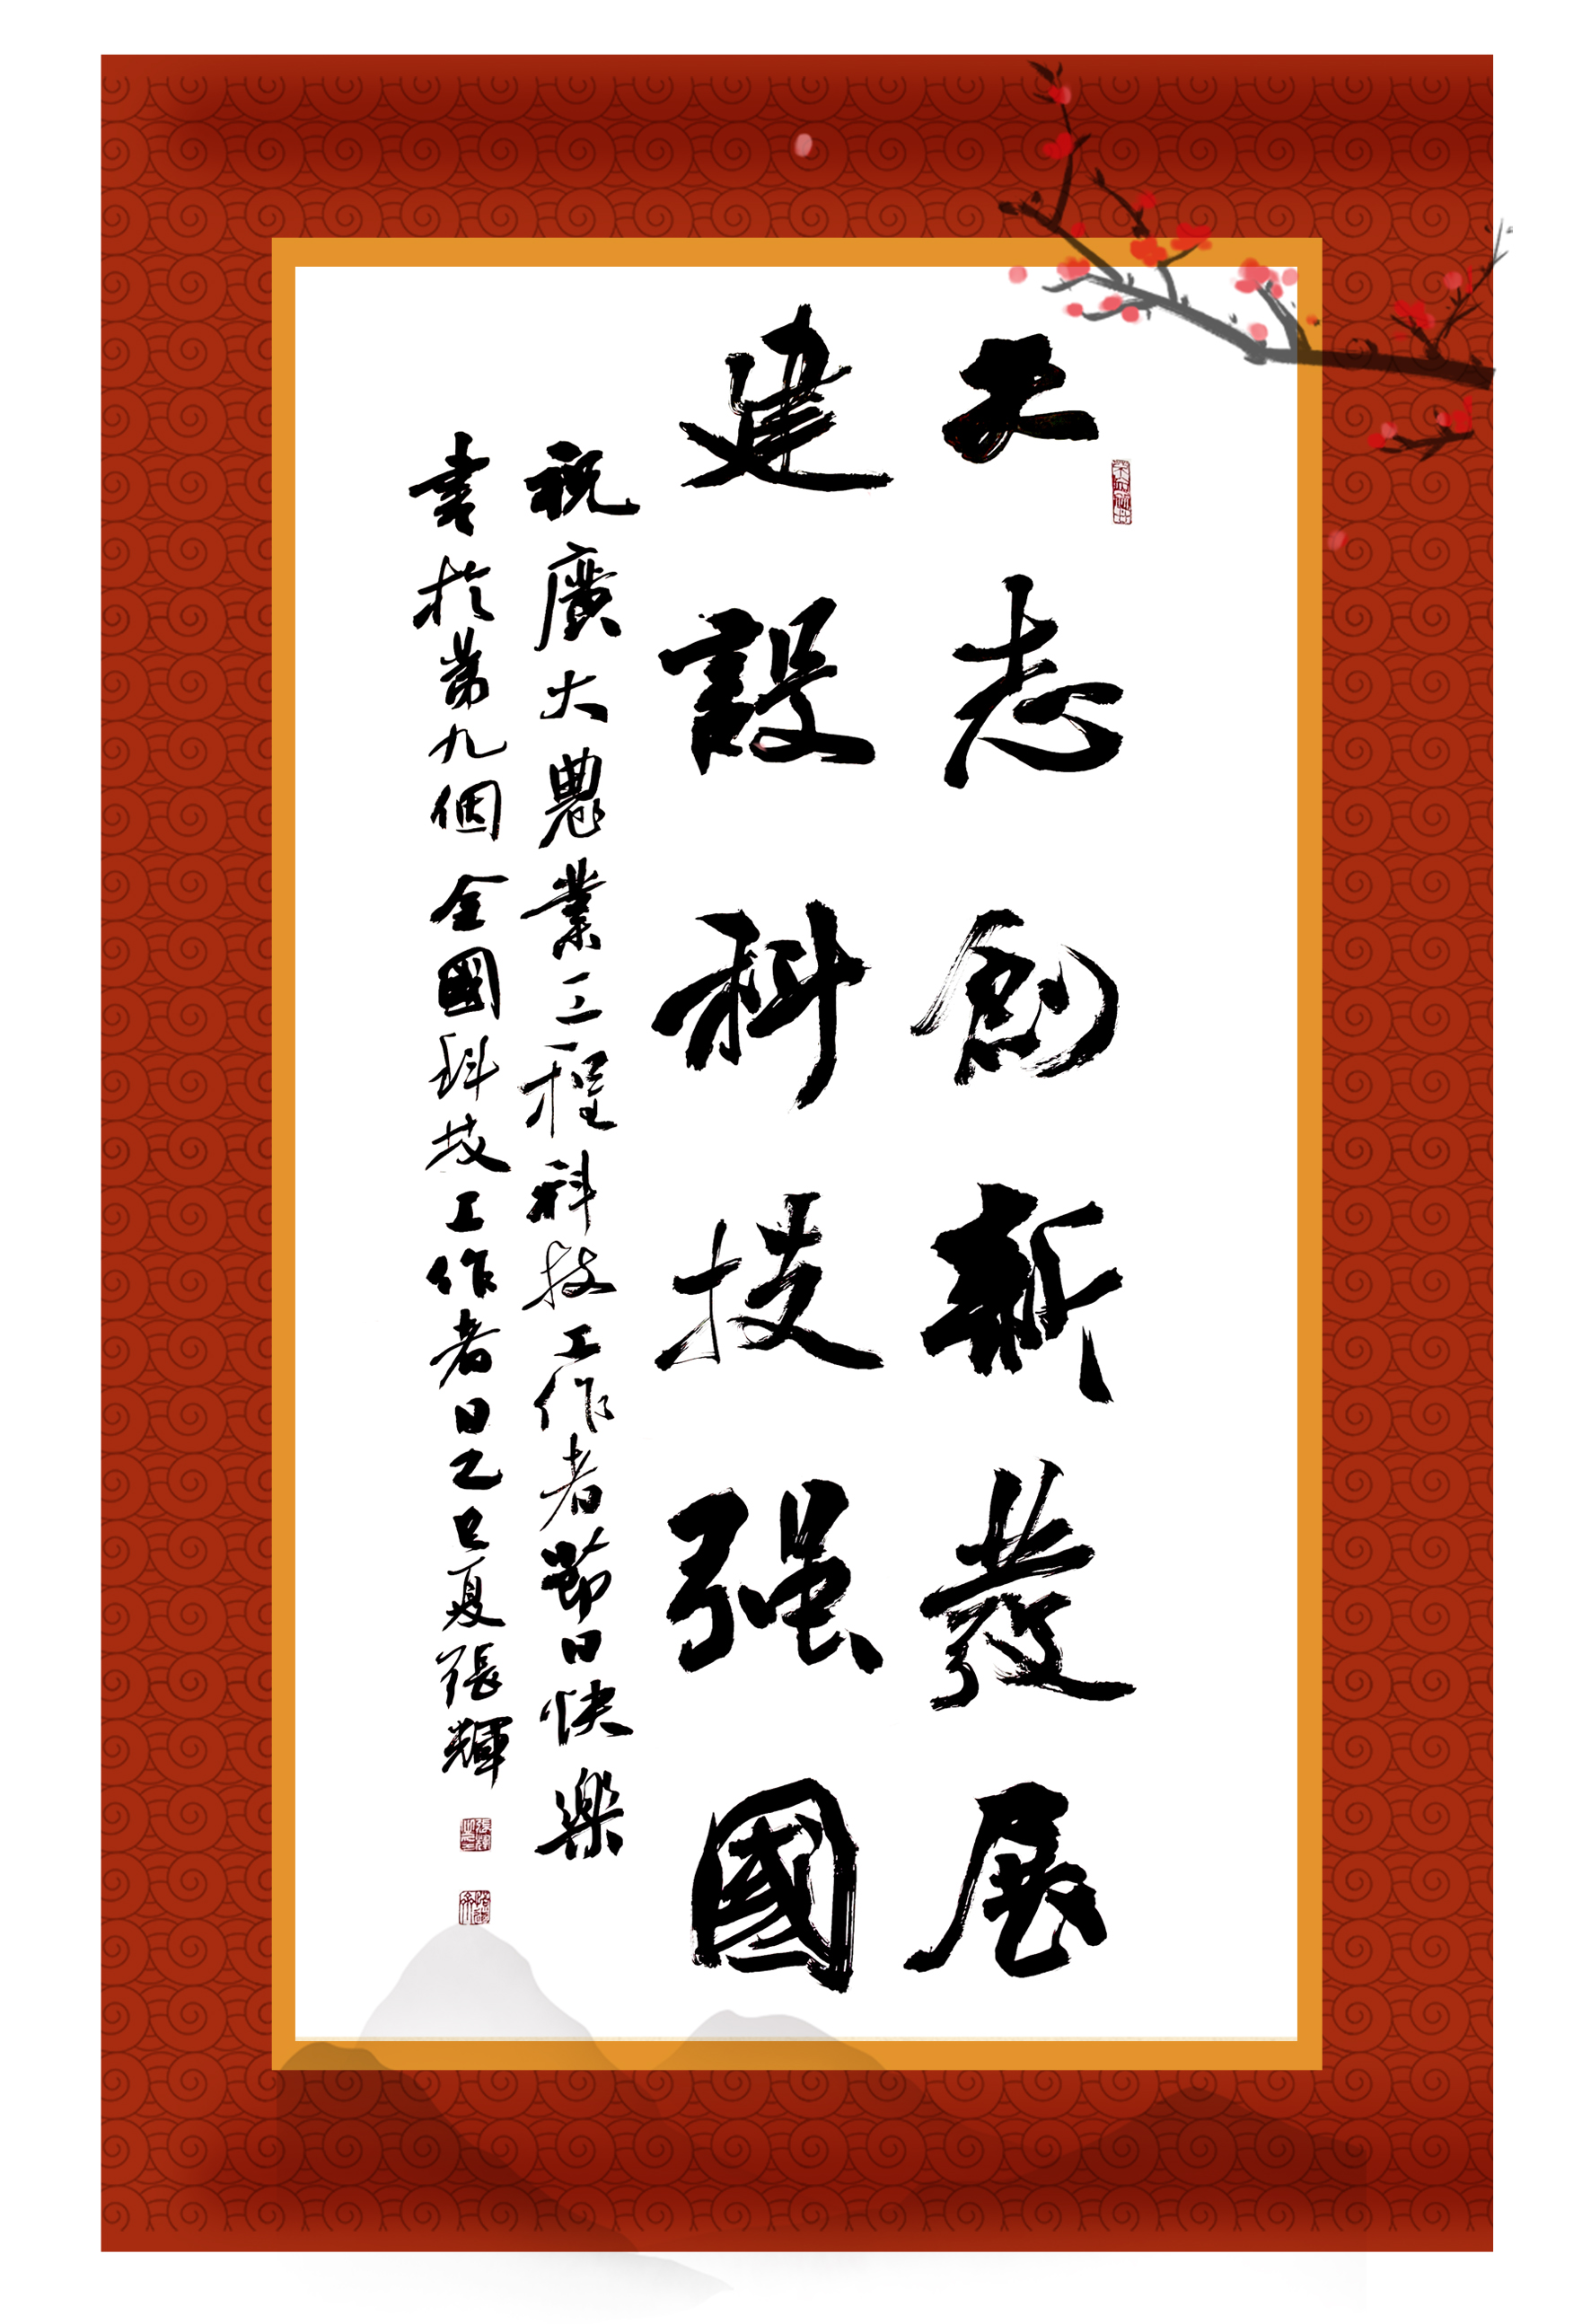 矢志創新發展
建設科技强國
祝廣大農業工程科技工作者節日快樂
書於第九個全國科技工作者日乙巳夏張輝